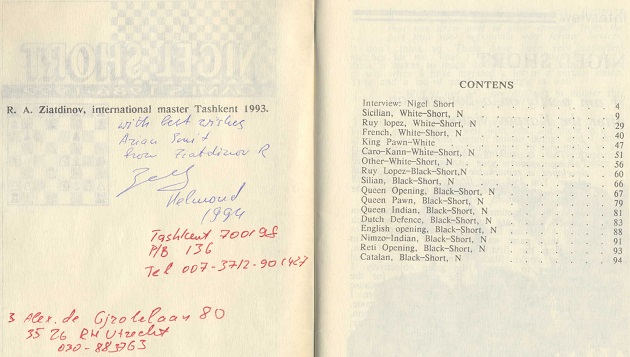 R. A. Ziatdinov, international master Tashkent 1993.
with best wishes
Arian Smit
from Ziatdinov R
Helmond
1994
Tashkent 700198
P/B 136
Tel 007-3712-901427
3 Alex. de 80
35 26 RH Utrecht
030-883763
CONTENS
Interview: Nigel Short . . . . . . . . . 4
Sicilian, White-Short, N . . . . . . . . . 9
Ruy lopez, White-Short, N . . . . . . . . . 29
French, White-Short, N . . . . . . . . . 40
King Pawn-White . . . . . . . . . 47
Caro-Kann-White-Short, N . . . . . . . . . 51
Other-White-Short, N . . . . . . . . . 56
Ruy Lopez-Black-Short,N . . . . . . . . . 60
Silian, Black-Short, N . . . . . . . . . 66
Queen Opening, Black-Short, N . . . . . . . . . 67
Queen Pawn, Black-Short, N . . . . . . . . . 79
Queen Indian, Black-Short, N . . . . . . . . . 81
Dutch Defence, Black-Short, N . . . . . . . . . 83
English opening, Black-Short, N . . . . . . . . . 88
Nimzo-Indian, Black-Short, N . . . . . . . . . 91
Reti Opening, Black-Short, N . . . . . . . . . 93
Catalan, Black-Short, N . . . . . . . . . 94